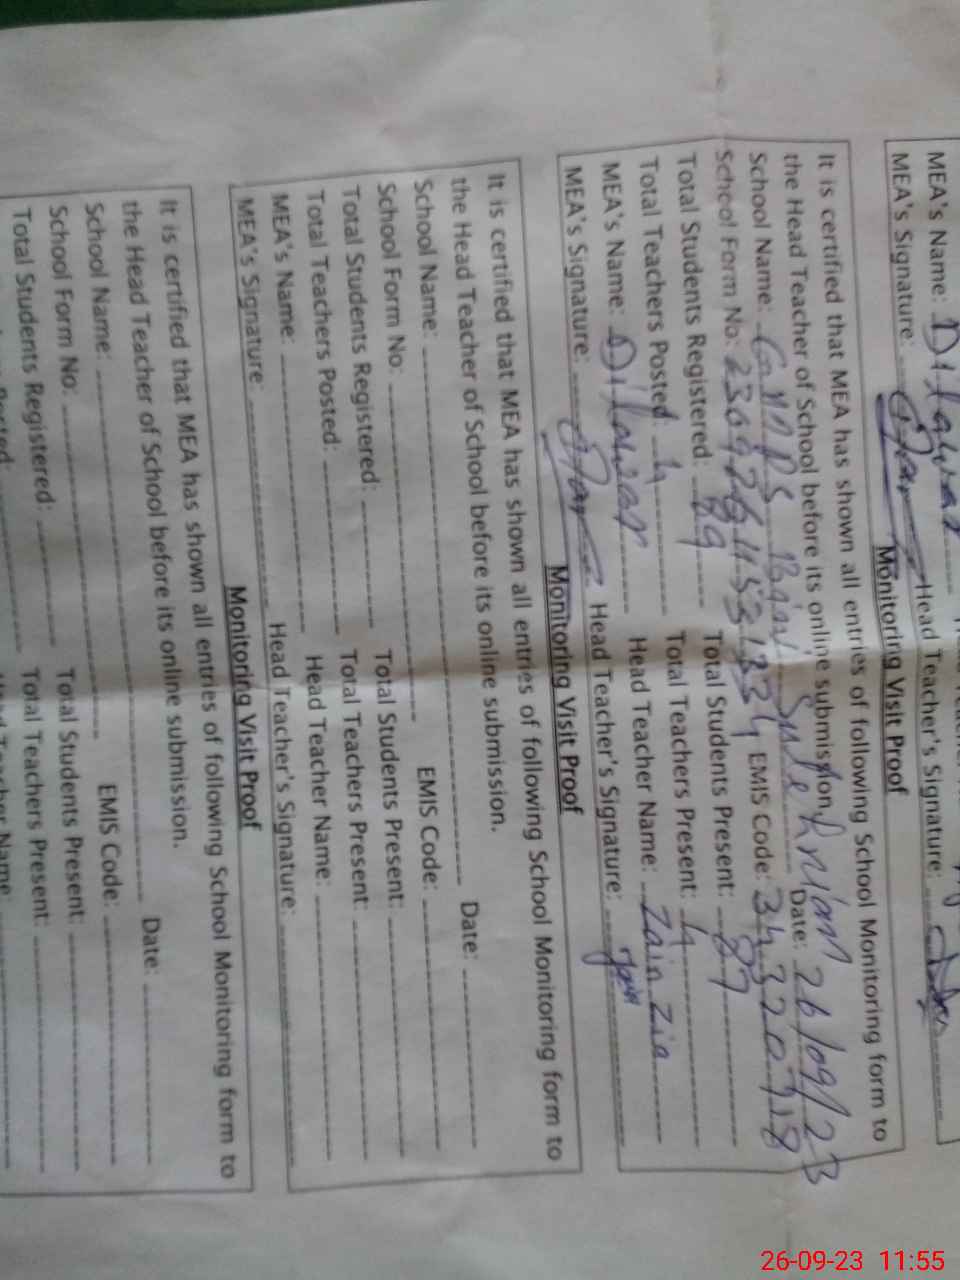 MEA's Name: Dilawar
MEA's Signature: Head Teacher's Signature:
Monitoring Visit Proof
It is certified that MEA has shown all entries of following School Monitoring form to
the Head Teacher of School before its online submission. Date: 26/09/23
School Name: GMPS EMIS Code: 34320718
School Form No: Total Students Present: 87
Total Students Registered: 89 Total Teachers Present: 4
Total Teachers Posted: 4 Head Teacher Name: Zain Zia
MEA's Name: Dilawar Head Teacher's Signature:
MEA's Signature:
Monitoring Visit Proof
It is certified that MEA has shown all entries of following School Monitoring form to
the Head Teacher of School before its online submission. Date:
School Name: EMIS Code:
School Form No: Total Students Present:
Total Students Registered: Total Teachers Present:
Total Teachers Posted: Head Teacher Name:
MEA's Name: Head Teacher's Signature:
MEA's Signature:
Monitoring Visit Proof
It is certified that MEA has shown all entries of following School Monitoring form to
the Head Teacher of School before its online submission. Date:
School Name: EMIS Code:
School Form No: Total Students Present:
Total Students Registered: Total Teachers Present:
26-09-23 11:55